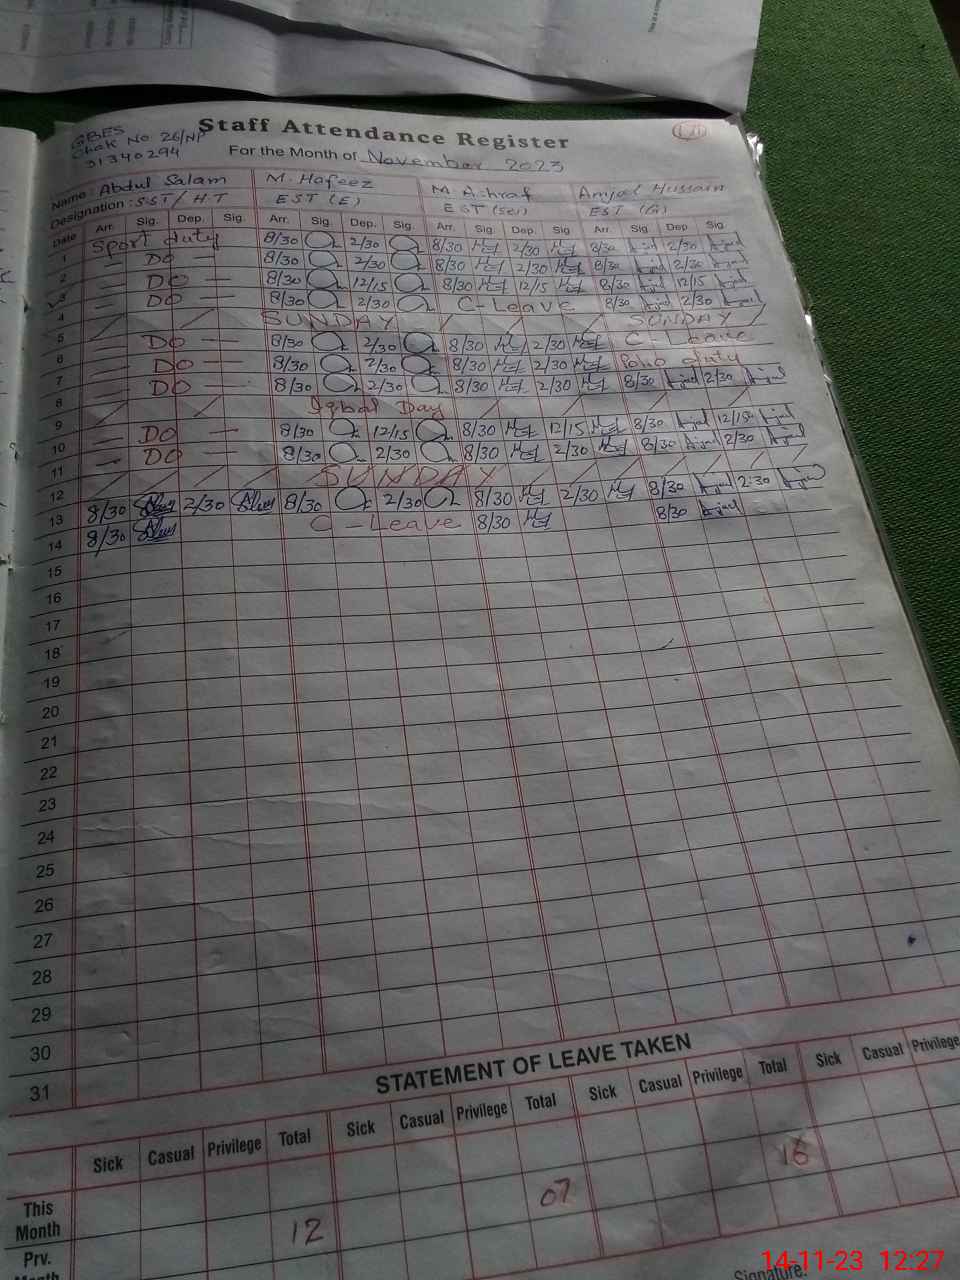 Staff Attendance Register
GBES
Chak No 26/NP
31340294
For the Month of November 2023
Name: Abdul Salam M. Hafeez M. Ashraf Amjad Hussain
Designation: SST/H.T EST (E) EST (Sci) EST (G)
Date Arr. Sig. Dep. Sig. Arr. Sig. Dep. Sig. Arr. Sig. Dep. Sig Arr. Sig. Dep. Sig.
1 Sport duty 8/30 2/30 8/30 2/30 8/30 Amjad 2/30 Amjad
2 — DO — 8/30 2/30 8/30 2/30 8/30 Amjad 2/30 Amjad
3 — DO — 8/30 12/15 8/30 12/15 8/30 Amjad 12/15 Amjad
4 — DO — 8/30 2/30 C-Leave 8/30 Amjad 2/30 Amjad
5 SUNDAY SUNDAY
6 — DO — 8/30 2/30 8/30 2/30 C-Leave
7 — DO — 8/30 2/30 8/30 2/30 Polio duty
8 — DO — 8/30 2/30 8/30 2/30 8/30 Amjad 2/30 Amjad
9 Iqbal Day
10 — DO — 8/30 12/15 8/30 12/15 8/30 Amjad 12/15 Amjad
11 — DO — 8/30 2/30 8/30 2/30 8/30 Amjad 2/30 Amjad
12 SUNDAY
13 8/30 2/30 8/30 2/30 8/30 2/30 8/30 Amjad 2:30 Amjad
14 8/30 C-Leave 8/30 8/30 Amjad
15
16
17
18
19
20
21
22
23
24
25
26
27
28
29
30
31
STATEMENT OF LEAVE TAKEN
Sick Casual Privilege Total Sick Casual Privilege Total Sick Casual Privilege Total Sick Casual Privilege
This Month 12 07 16
Prv. Month
Signature:
14-11-23 12:27